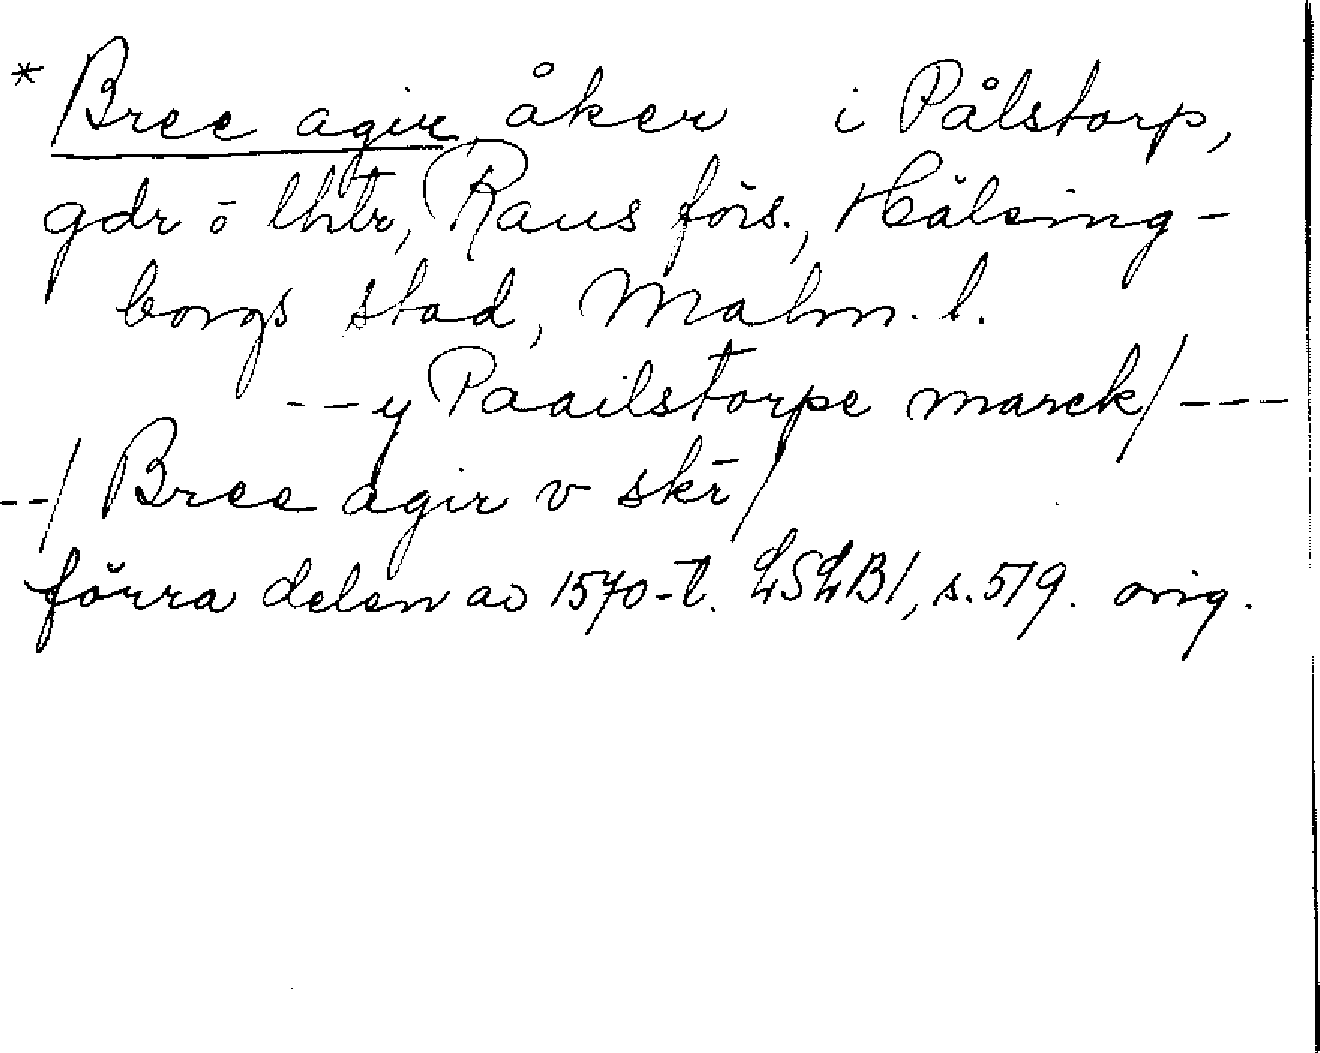 * Bree agir, åker i Pålstorp,
gdr o lhtr, Raus förs., Hälsing-
borgs stad, Malm. l.
--y Paailstorpe marck/---
--/ Bree agir v skr̄/
förra delen av 1570-t. LSLB1, s.519. orig.